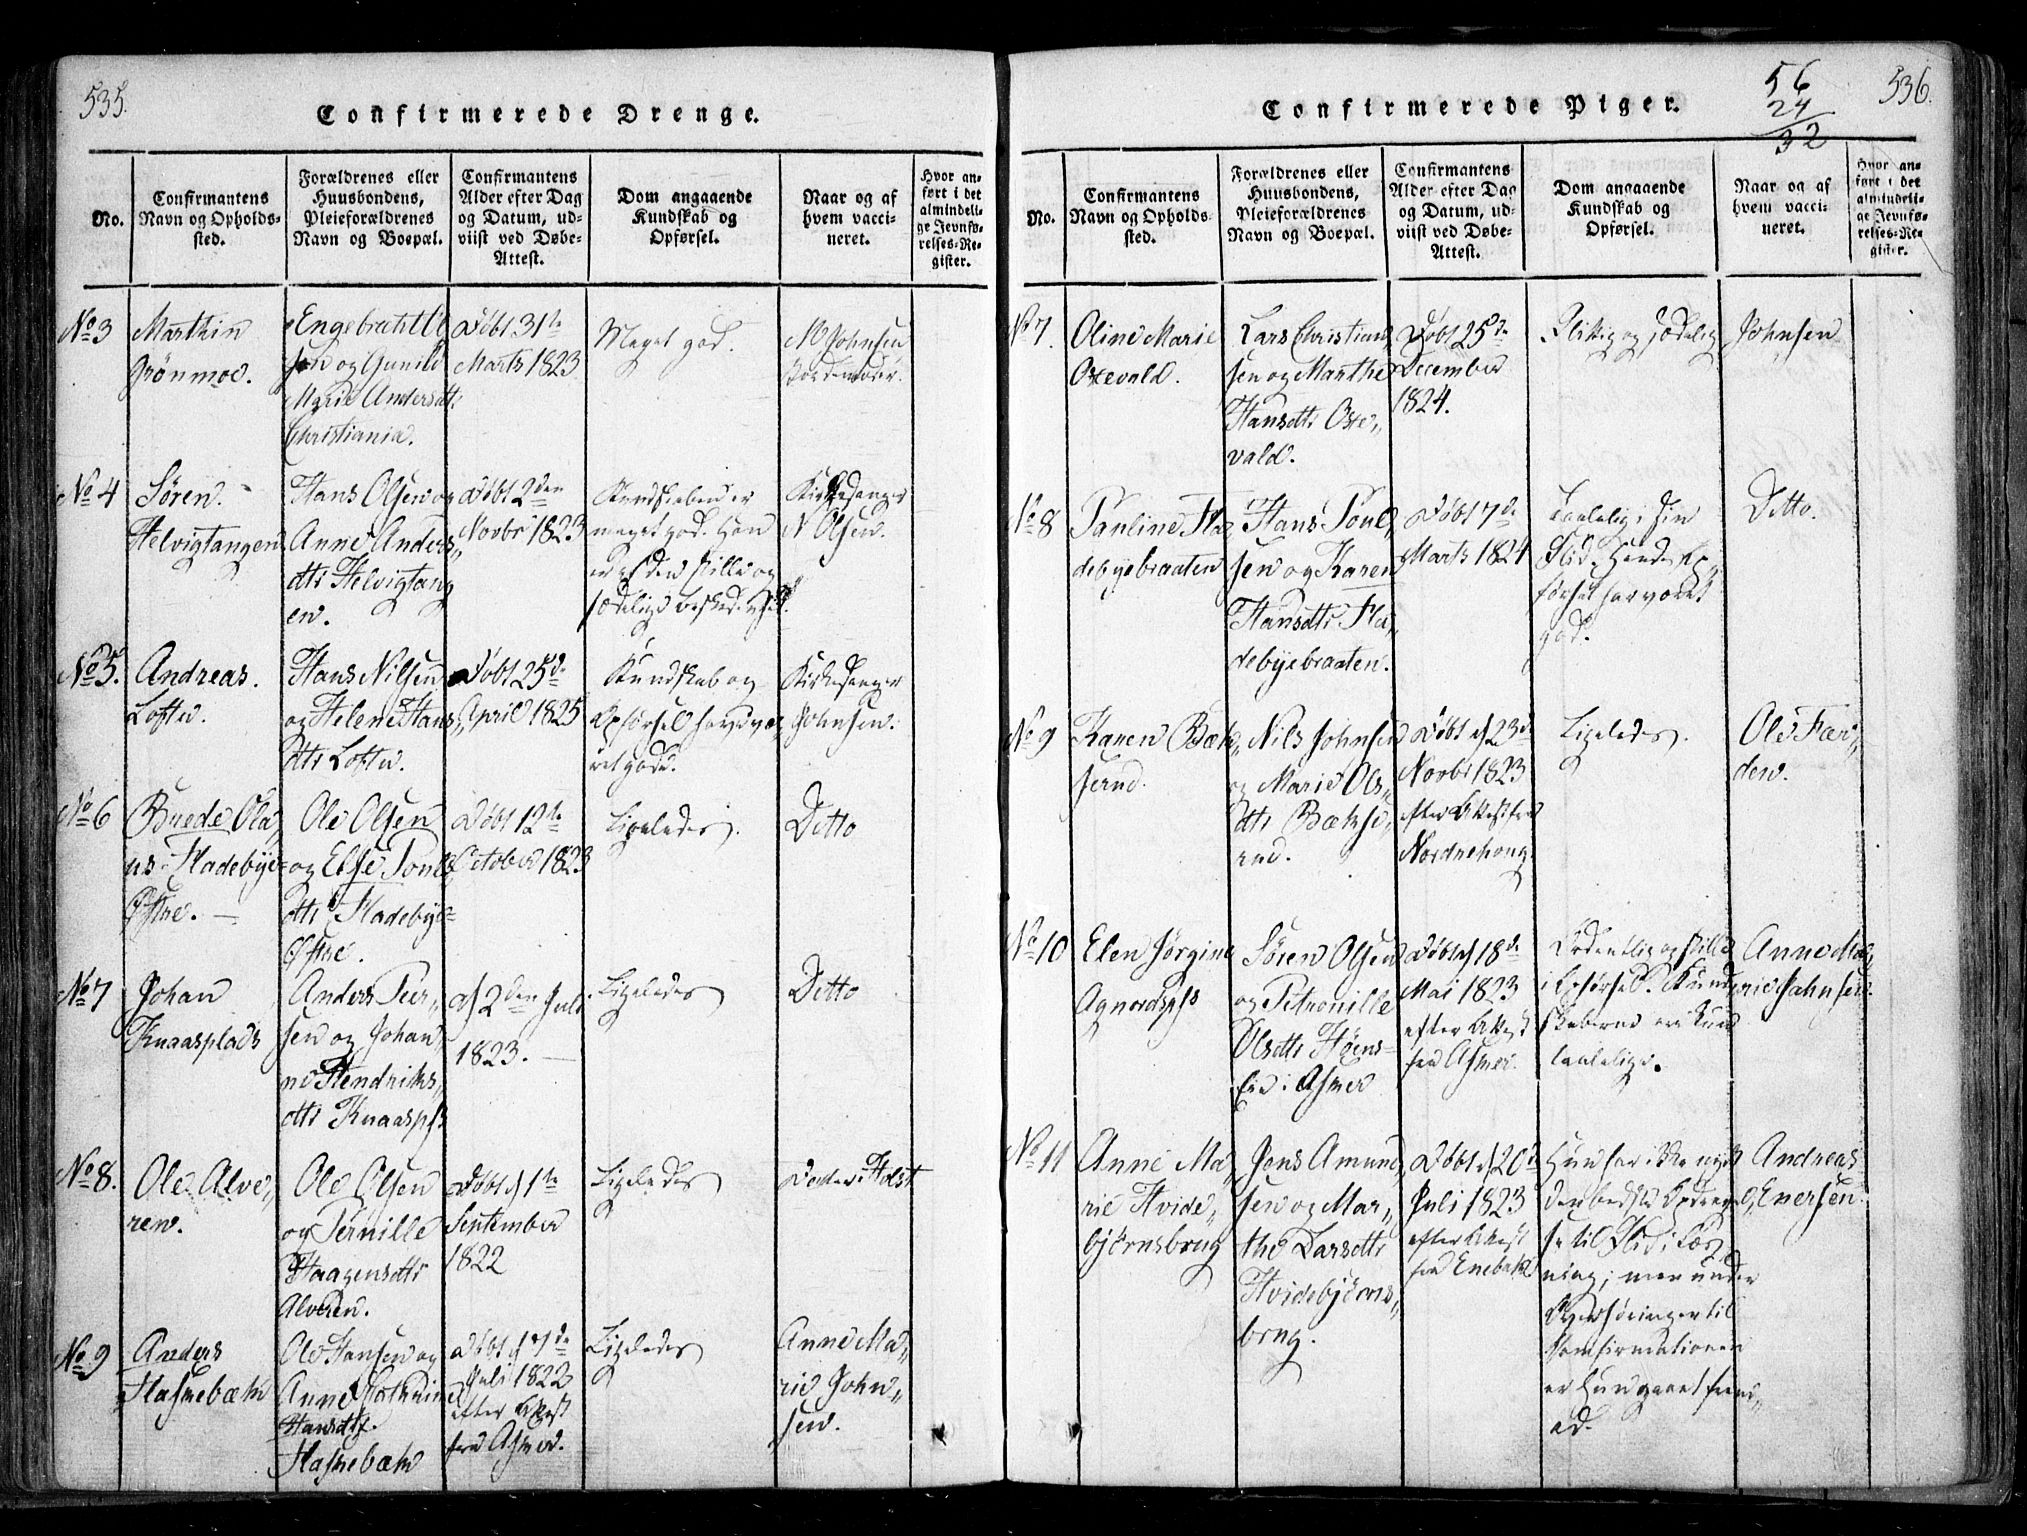 535.
Confirmerede Drenge.
No.
Confirmantens
Navn og Opholds-
sted.
Forældrenes eller
Huusbondens,
Pleieforældrenes
Navn og Boepæl.
Confirmantens
Alder efter Dag
og Datum, ud-
viist ved Døbe-
Attest.
Dom angaaende
Kundskab og
Opførsel.
Naar og af
hvem vacci-
neret.
Hvor an-
ført i det
almindeli-
ge Jevnfø-
relses-Re-
gister.
No 3
Marthin
Grönmoe.
Engebrecht Ol
sen og Gunild
Marie Andersdtt:
Christiania.
Döbt 31te
Marts 1823
Meget god.
M Johnsen
Jordemoder.
No 4
Søren
Helvigtangen
Hans Olsen og
Anne Anders„
dtr Helvigtang
en.
Døbt 2den
Novbr 1823
Kundskaben er
meget god. Han
er af den stille og
sædelige beskedenhed.
Kirkesanger
N Olsen.
No 5.
Andreas.
Loften.
Hans Nilsen
og Helene Hans„
dtr Loften.
Døbt 25de
April 1825
Kundskab og
Opførsel have væ„
ret gode.
Kirkesanger
Johnsen.
No 6
Buede Ola„
us Fladebye
Østre. —
Ole Olsen
og Else Pouls
dtr Fladebye
Østre.
Døbt 12te
October 1823
Ligeledes.
Ditto
No 7
Johan
Knaasplads
Anders Peer„
sen og Johan„
ne Hendriks„
dtr Knaaspls
d 2den Juli
1823. —
Ligeledes
Ditto
No 8.
Ole Alve„
ren.
Ole Olsen
og Pernille
Haagensdtr
Alveren.
Døbt d 1te
September
1822
Ligeledes
Doctor Holst
No 9
Anders
Flasnebæk
Ole Hansen og
Anne Cathrine
Hansdtr
Flasnebæk
Døbt d 7de
Juli 1822
efter Attest
fra Asmer.
Ligeledes
Anne Ma„
rie John„
sen.
56
24
32
536.
Confirmerede Piger.
No.
Confirmantens
Navn og Opholds-
sted.
Forældrenes eller
Huusbondens,
Pleieforældrenes
Navn og Boepæl.
Confirmantens
Alder efter Dag
og Datum, ud-
viist ved Døbe-
Attest.
Dom angaaende
Kundskab og
Opførsel.
Naar og af
hvem vacci-
neret.
Hvor an-
ført i det
almindeli-
ge Jevnfø-
relses-Re-
gister.
No 7.
Oline Marie
Oxevald.
Lars Christian
sen og Marthe
Hansdtr Oxe„
vald.
Døbt 25de
December
1824.
Flittig og sædelig
Johnsen
No 8
Pauline Fla„
debyebraaten
Hans Poul„
sen og Karen
Hansdtr Fla„
debyebraaten.
Døbt 7de
Marts 1824
Taalelig i sin
Flid. Hendes Op„
førsel har været
god.
Ditto.
No 9
Karen Bæk„
serud.
Nils Johnsen
og Marie Ols„
dtr Bækse„
rud.
Døbt d 23de
Novbr 1823
efter Attest fra
Nordrehoug
Ligeledes.
Ole Fær„
den.
No 10
Elen Jørgine
Agnordspls
Søren Olsen
og Petronille
Olsdtr
i Asmer
Døbt d 18de
Mai 1823
efter Attest
fra Asmer.
Ordentlig og stille
i Opførsel. Kund„
skaberne ere kun
taalelige.
Anne Ma„
rie Johnsen.
No 11
Anne Ma„
rie Hvide„
bjørnsbrug
Jens Amund„
sen og Mar„
the Larsdtr
Hvidebjørns„
brug.
Døbt d 20de
Juli 1823
efter Attest
fra Enebak
Hun har ikke nydt
den bedste Opdragel„
se til Flid i Læs„
ning; men under
Overhøringen til
Confirmationen
er Hun gaaet frem„
ad.
Andreas
Enersen.